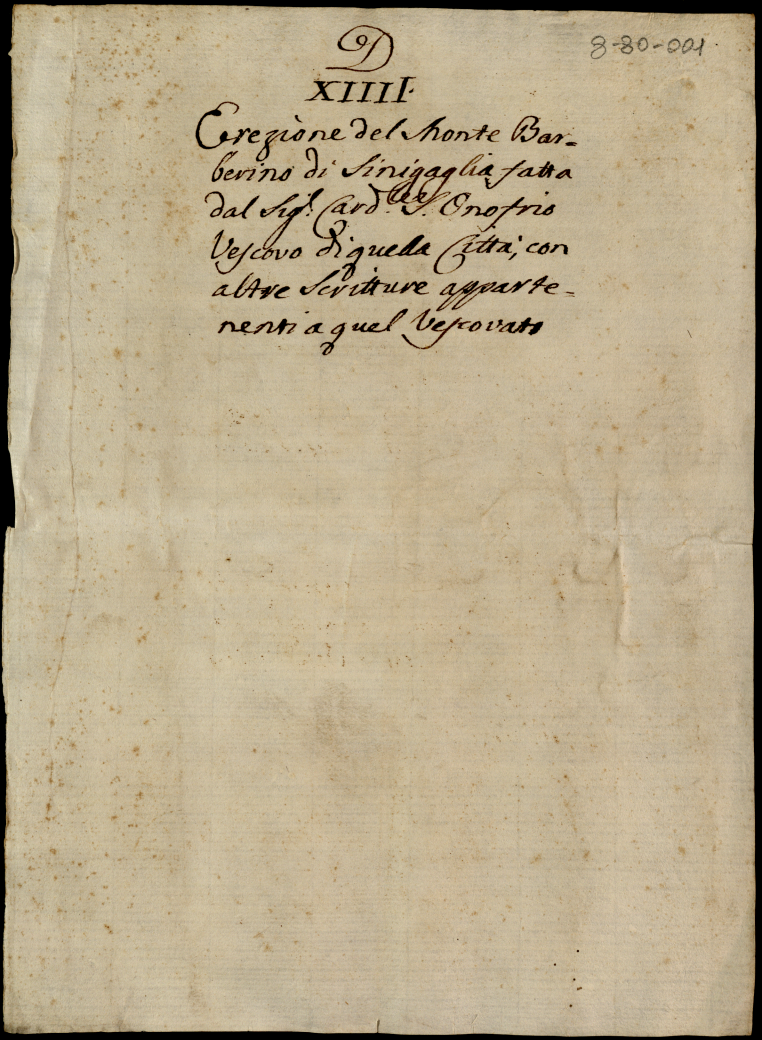 8-80-001.
D
XIIII.
Erezione del Monte Bar=
berino di Sinigaglia fatta
dal Sig.r Card.lee S. Onofrio
Vescovo di quella Città, con
altre Scritture apparte=
nenti a quel Vescovato